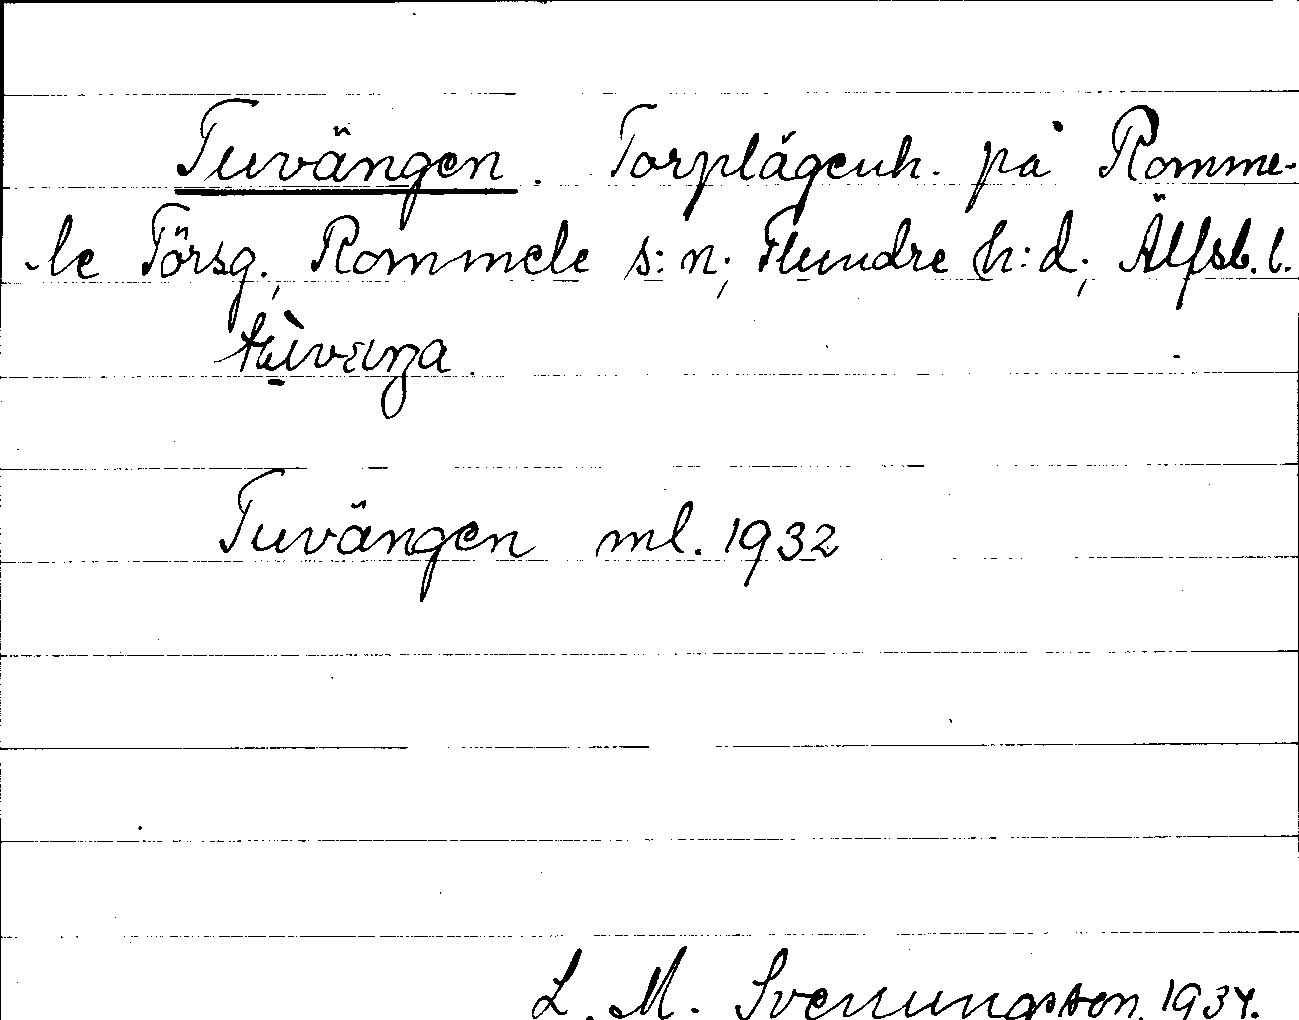 Tuvängen. Torplägenh. på Romme-
-le Törsg., Rommele s:n; Flundre h:d; Älfsb. l.
Tuvängen ml. 1932
L. M. Svenungsson. 1934.